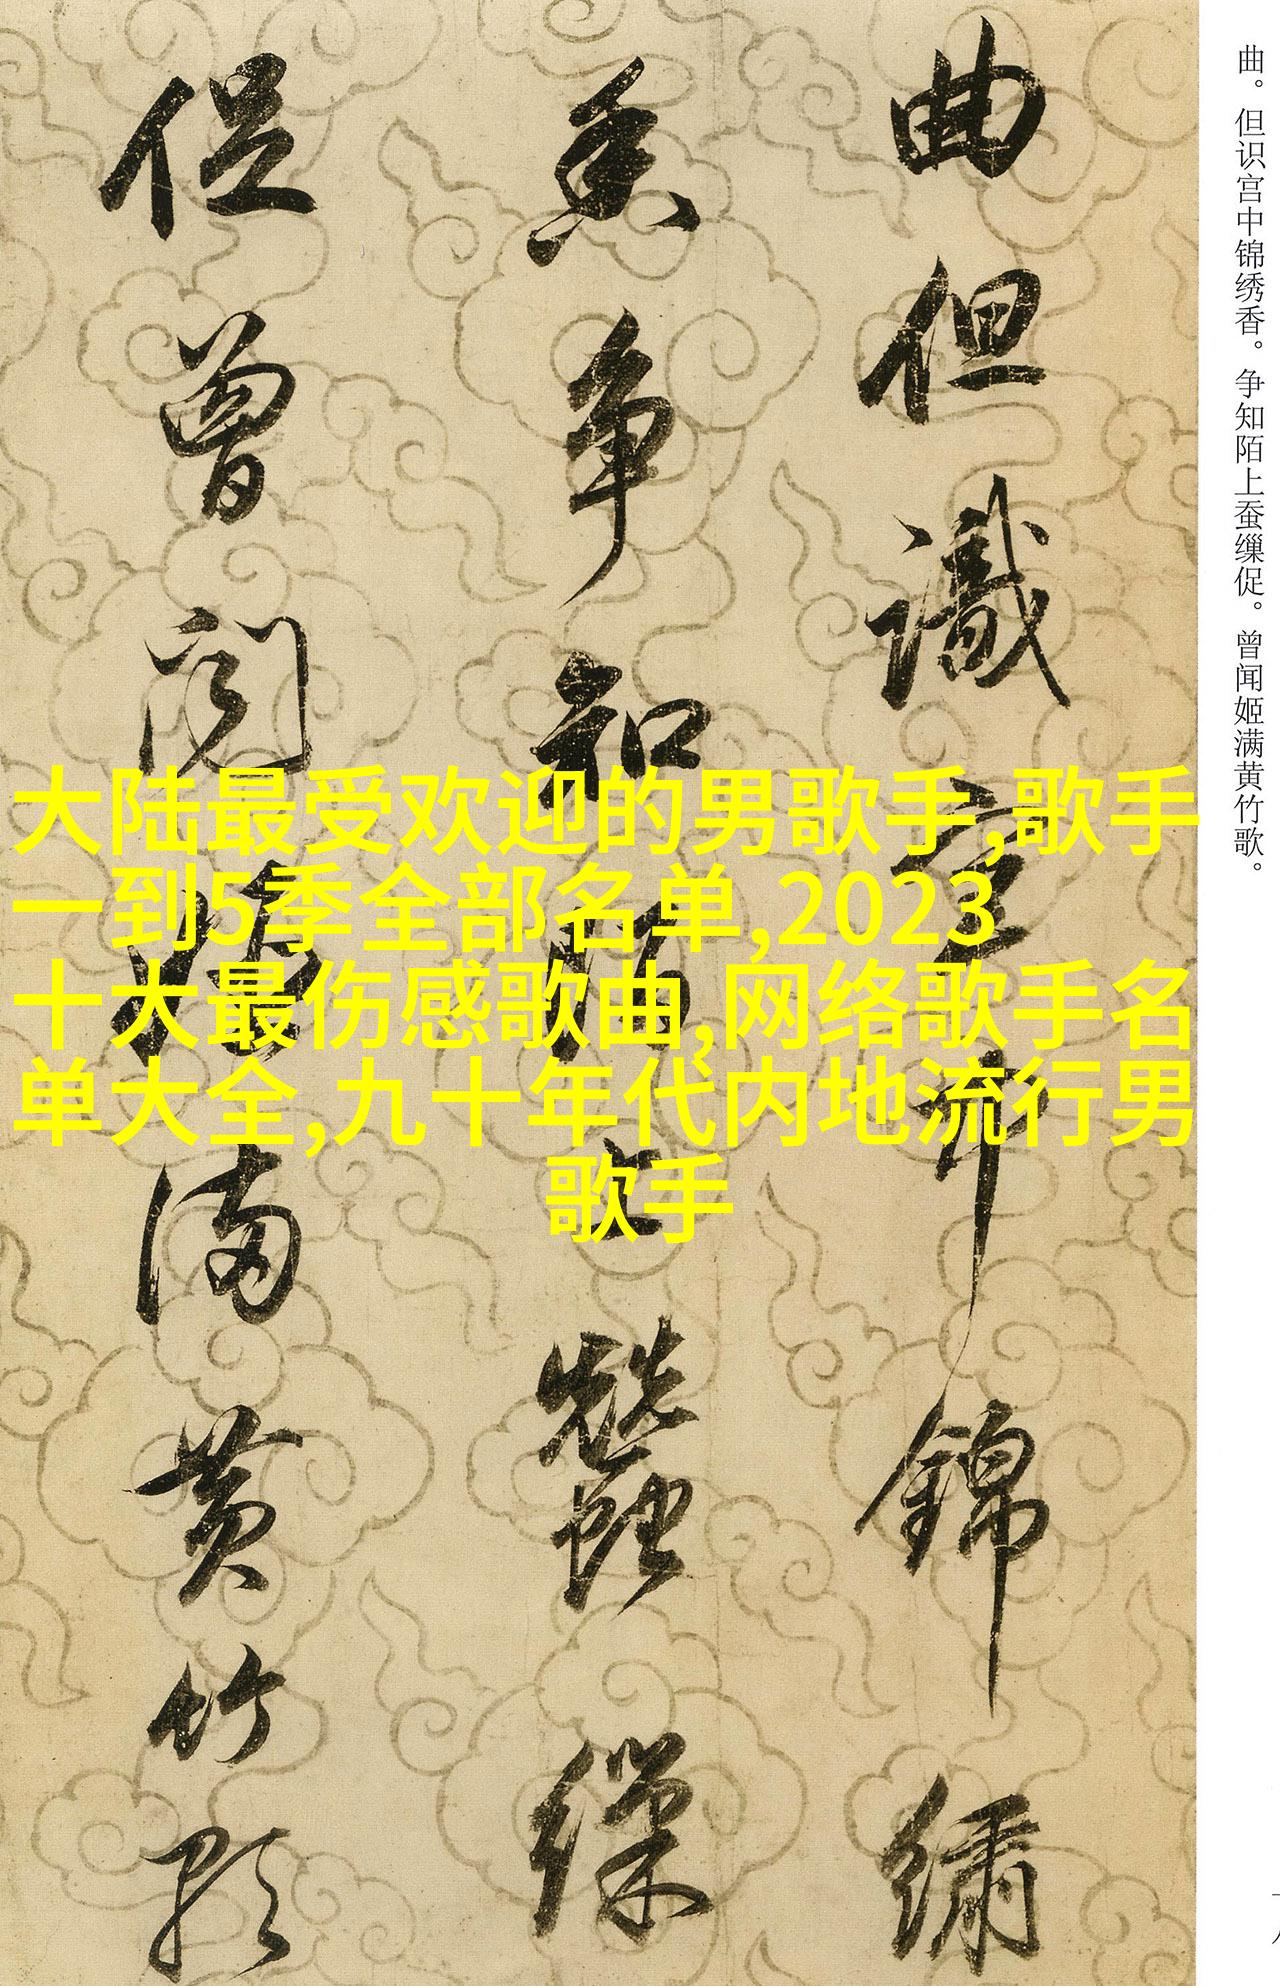 曲。但识宫中锦绣香。争知陌上蚕缫促。曾闻姬满黄竹歌。
曲但識宮中錦繡
香爭知陌上蠶繅
促曾聞姬滿黃竹歌
大陆最受欢迎的男歌手,歌手
一到5季全部名单,2023
十大最伤感歌曲,网络歌手名
单大全,九十年代内地流行男
歌手